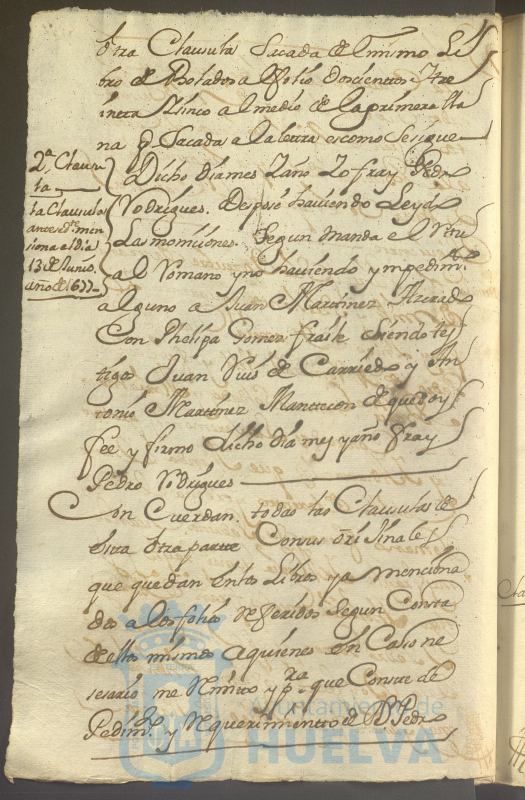 otra Clausula Sacada del mismo Li
bro de Botados a folio Doscientos, ytre
inta Sinco al medio de la primera lla
na q.e Sacada a la letra es como Sesigue
2.ª Clausu
la
la Clausula
antesed.te men
siona el dia
13 de Junio
año de 1677
Dicho dia mes Iaño Io fray Pedro
Rodrigues. Despose haviendo Leydo
Las moniciones. Segun manda el Ritu
al Romano y no haviendo ympedim.to
alguno a Juan Martinez
Con Phelipa Gomez fraile siendo tes
tigos Juan Ruis de Carriedo y An
tonio Martinez Mantecon de que doy
fee y firmo dicho dia mes y año fray
Pedro Rodrigues
Con Cuerdan todas las Clausulas de
esta otra parte Consus orijinales
que quedan en los Libros ya menciona
dos a los folios Referidos Segun Consta
de ellos mismos aquienes en Caso ne
sesario me Remito y p.ra que Conste de
Pedim.to y Requerimento de D. Pedro
Ayuntamiento de
HUELVA